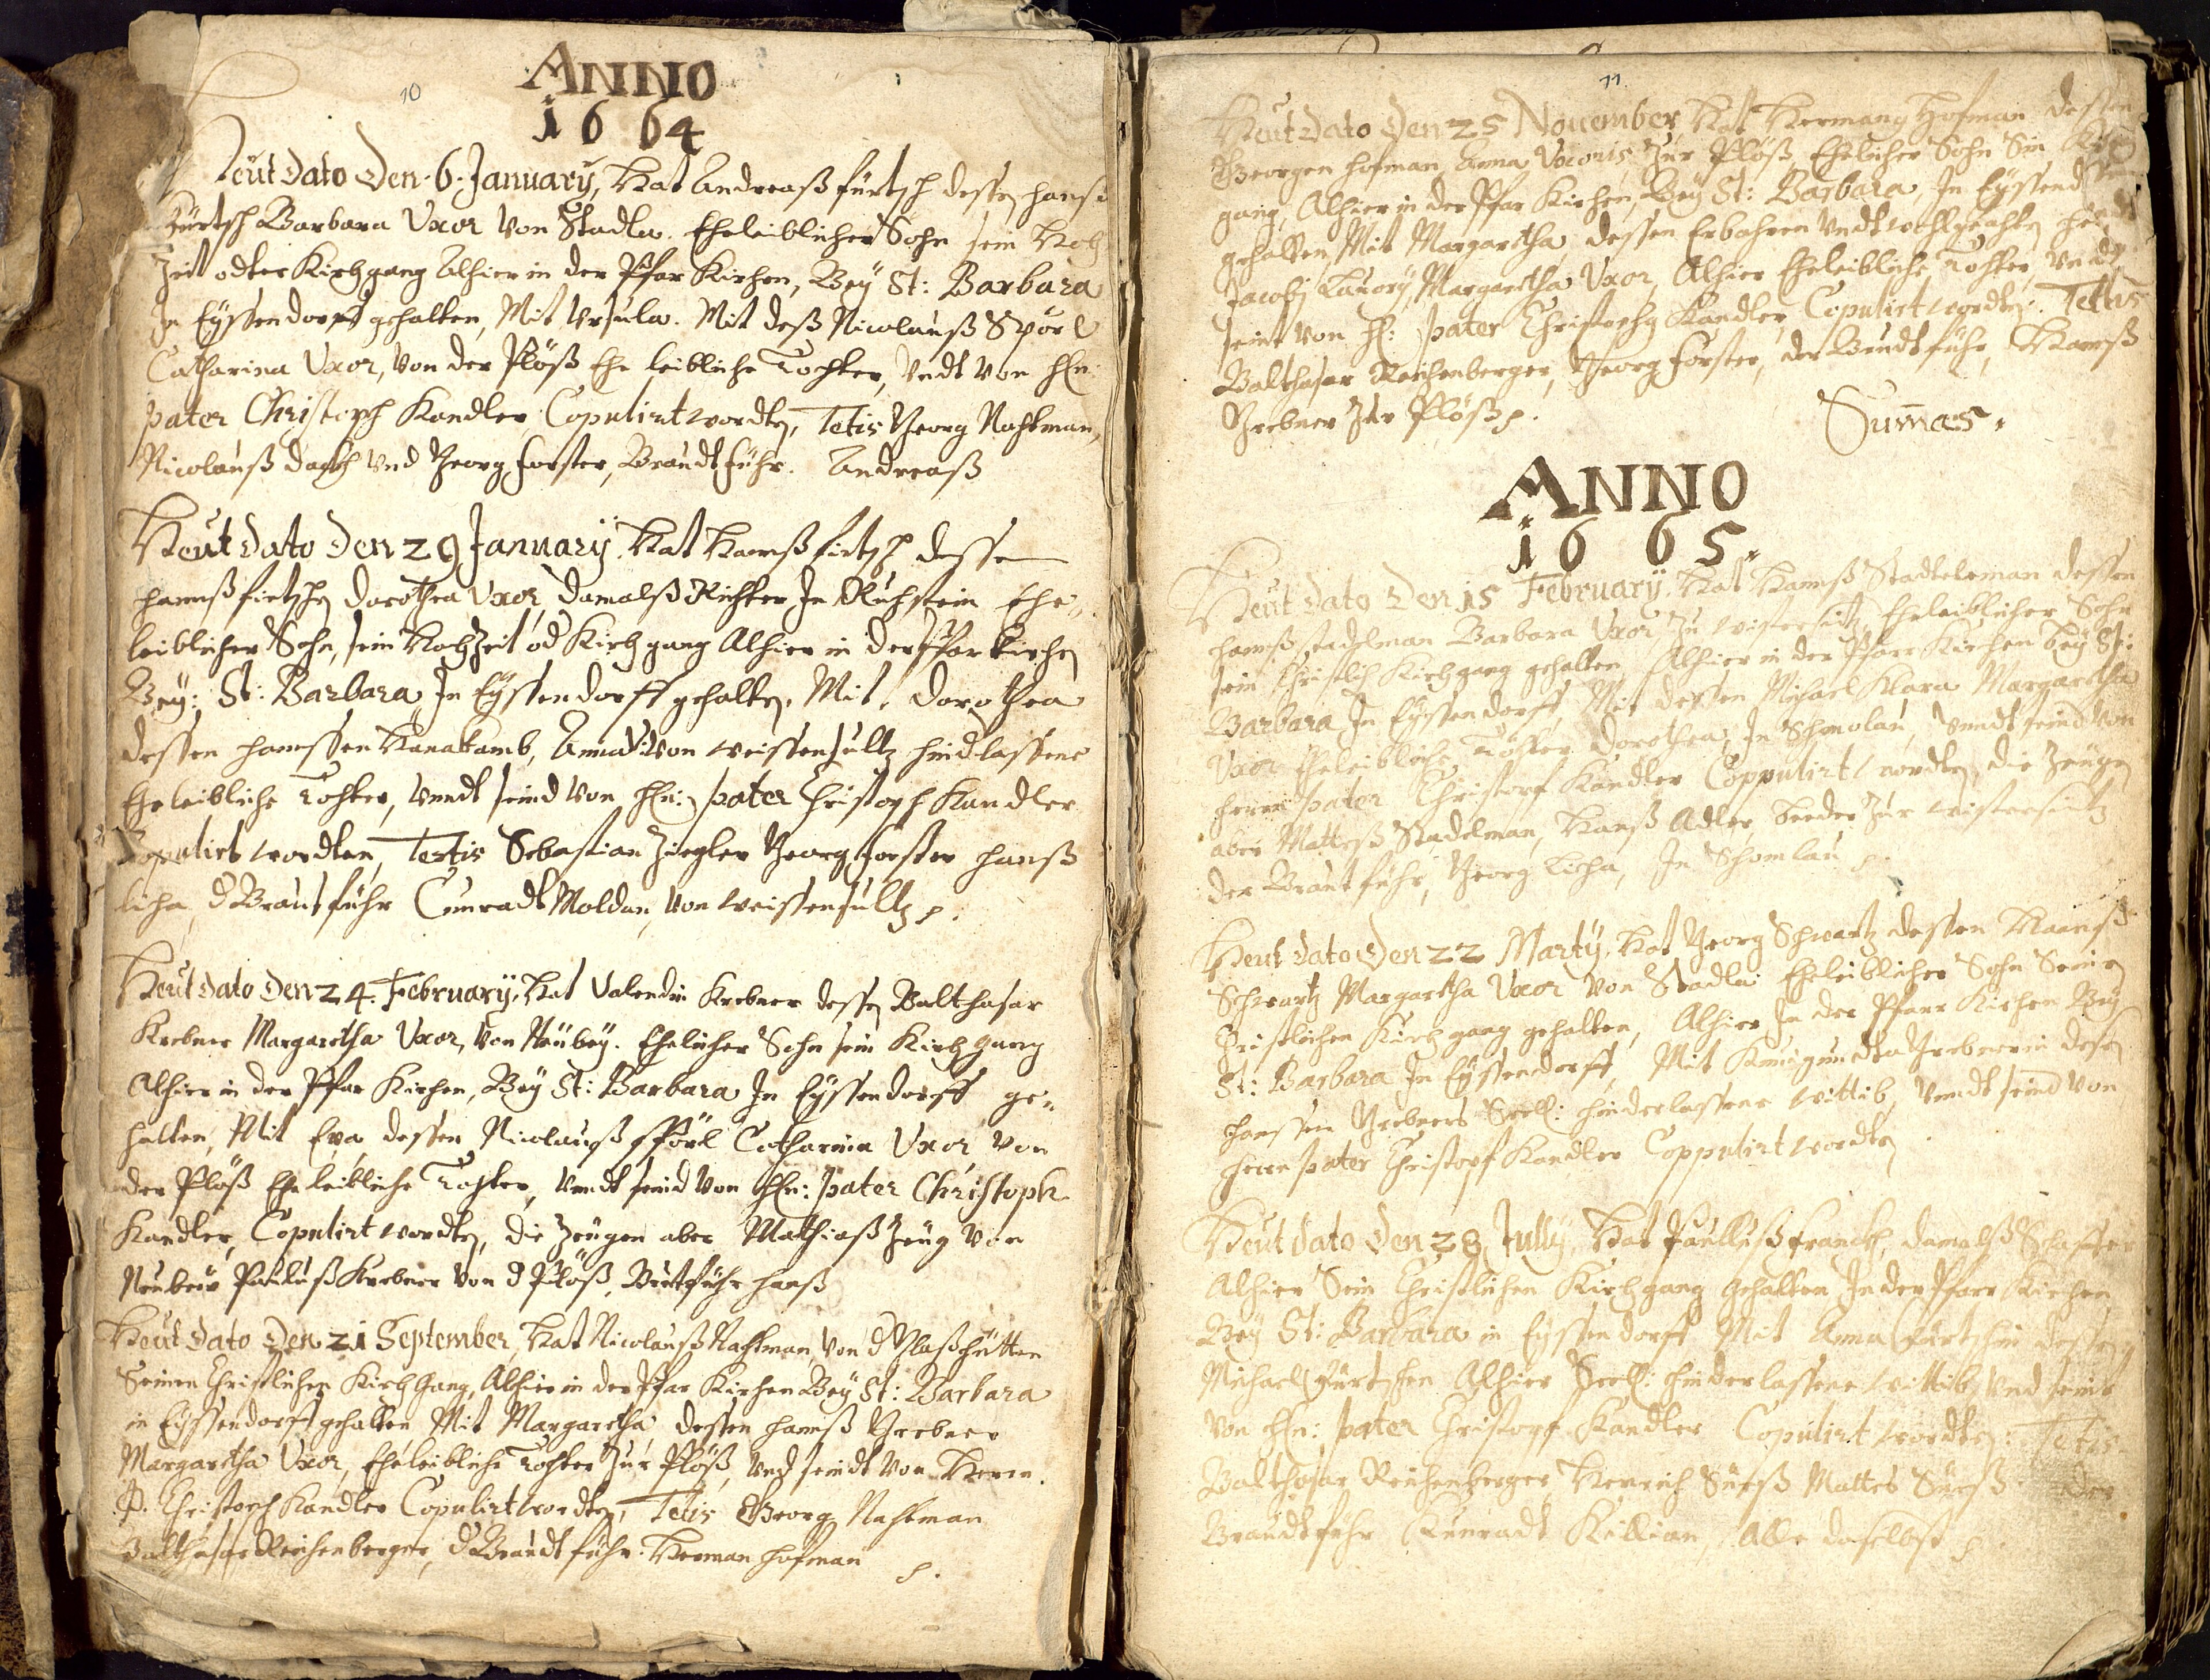 10
ANNO
1664
Heut dato Den 6 January, Hat Andreaß fürtsch dessen hanß
Fürtsch Barbara Uxor Von Stadla. Eheleiblicher Sohn sein Hoch
Zeit oder Kirchgang Alhier in der Pfar Kirchen, Bey St: Barbara
In Eyssendorff gehalten, Mit Vrsula. Mit deß Nicolauß Spörl
Catharina Uxor, Von der Plöß Ehe leibliche Tochter, Vndt Von Hn:
pater Christoph Kandler Copulirt wordten, Tetis Georg Nachtman,
Nicolauß Vnd Georg forster, Braudtführ. Andreaß
Heut dato Den 29 January. Hat Hanß fietsch dessen
hanß fietschen Dorothea Uxor, damalß Richter In Ruhstein Ehe-
leiblicher Sohn, sein Hochzeit od Kirchgang Alhier in der Pfarkirchen
Bey: St: Barbara In Eyssendorff gehalten. Mit. Dorothea
dessen hanssen Anna Von weissensultz hindlassene
Eheleibliche Tochter, Vnndt seind Von Hn: pater Christoph Kandler
Copulirt wordten, Testis Sebastian Ziegler Georg forster hanß
licha, d Brautführ Cunradt Moldan, Von weissensultz p.
Heut dato Den 24. February, Hat Valendin Krebner dessen Balthasar
Krebner Margaretha Uxor, Von Neübey. Ehelicher Sohn sein Kirchgang
Alhier in der Pfar Kirchen, Bey St: Barbara In Eyssendorff ge-
halten, Mit Eva dessen Nicolauß Catharina Uxor Von
der Plöß Eheleibliche Tochter, Vnndt seind Von Hn: pater Christoph
Kandler, Copulirt wordten, die Zeugen aber Mathiaß Von
Neubeü Pauluß Krebner Von d Plöß, Brutführ hanß
Heut dato Den 21 September, Hat Nicolauß Nachtman Von d Glaßhütten
Seinen Christlichen Kirchgang, Alhier in der Pfar Kirchen Bey St: Barbara
in Eyssendorff gehalten Mit Margaretha dessen hanß Grebner
Margaretha Uxor, Eheleibliche Tochter Zur Plöß, Vnd seindt Von Herrn.
P. Christoph Kandler Copulirt wordten, Tetis Georg Nachtman
Balthasar Reichenberger, d Braudtführ. Herman Hofman p.
11.
Heut dato Den 25 Nouember Hat Hermang Hofman dessen
Georgen hofman Anna Uxoris Zur Plöß, Ehelicher Sohn Sin Kirch
gang, Alhier in der Pfar Kirchen, Bey St: Barbara In Eyssendorff
gehalten, Mit Margaretha dessen Erbahren Vndt wohlgeachten
Jacoby Margaretha Uxor, Alhier Eheleibliche Tochter, Vndt
seint Von H: pater Christophy Kandler Copulirt wordten: Testis
Balthasar Reichenberger, Georg forster, der Braudtführ, Hanß
Grebner Zur Plöß p.
Suma 5.
ANNO
1665.
Heut dato Den 15 February. Hat Hanß Stadtelman dessen
hanß stadelman Barbara Uxor Zu wistersitz, Eheleiblicher Sohn
sein Christlich Kirchgang gehalten, Alhier in der Pfarr Kirchen bey St:
Barbara In Eyssendorff, Mit dessen Michael Klara Margaretha
Uxor Eheleibliche Tochter Dorothea, In Schmolau, Vnndt seind Von
herrn pater Christopf Kandler Coppulirt wordten, die Zeugen
aber Matteß Stadelman, Hanß Adler, beeder Zur wistersitz
der Brautführ, Georg licha, In Schomlau p.
Heut dato Den 22 Marty, Hat Georg Schwartz dessen Hannß
Schwartz Margaretha Uxor Von Stadla Eheleiblicher Sohn Seinen
Cristlichen Kirchgang gehalten, Alhier In der Pfarr Kirchen Bey
St: Barbara In Eyssendorff, Mit Kunigundta Grebnerin dessen
hanssen Grebners Seel: hinderlassene wittib, Vnndt seind Von
herrn pater Christopf Kandler Coppulirt wordten
Heut dato Den 28 July, Hat Paulluß Franckh, damalß Schaffer
Alhier Sein Christlichen Kirchgang gehalten In der Pfarr Kirchen
Bey St: Barbara in Eyssendorff Mit Anna Fürtschin dessen
Michael Fürtschen Alhier Seel: hinderlassene wittib, Vnd seint
Von Hn: pater Christopf Kandler Copulirt wordten: Tetis
Balthasar Reichenberger Henrich Süeß Mattes Süeß der
Braudtführ Cunradt Killian, Alle daselbst p.